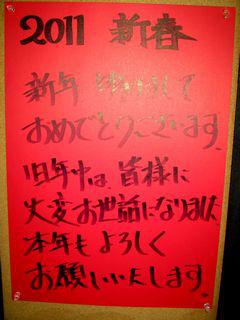 2011 新春
新年 明けまして
おめでとうございます。
旧年中は、皆様に
大変お世話になりました。
本年もよろしく
お願いいたします